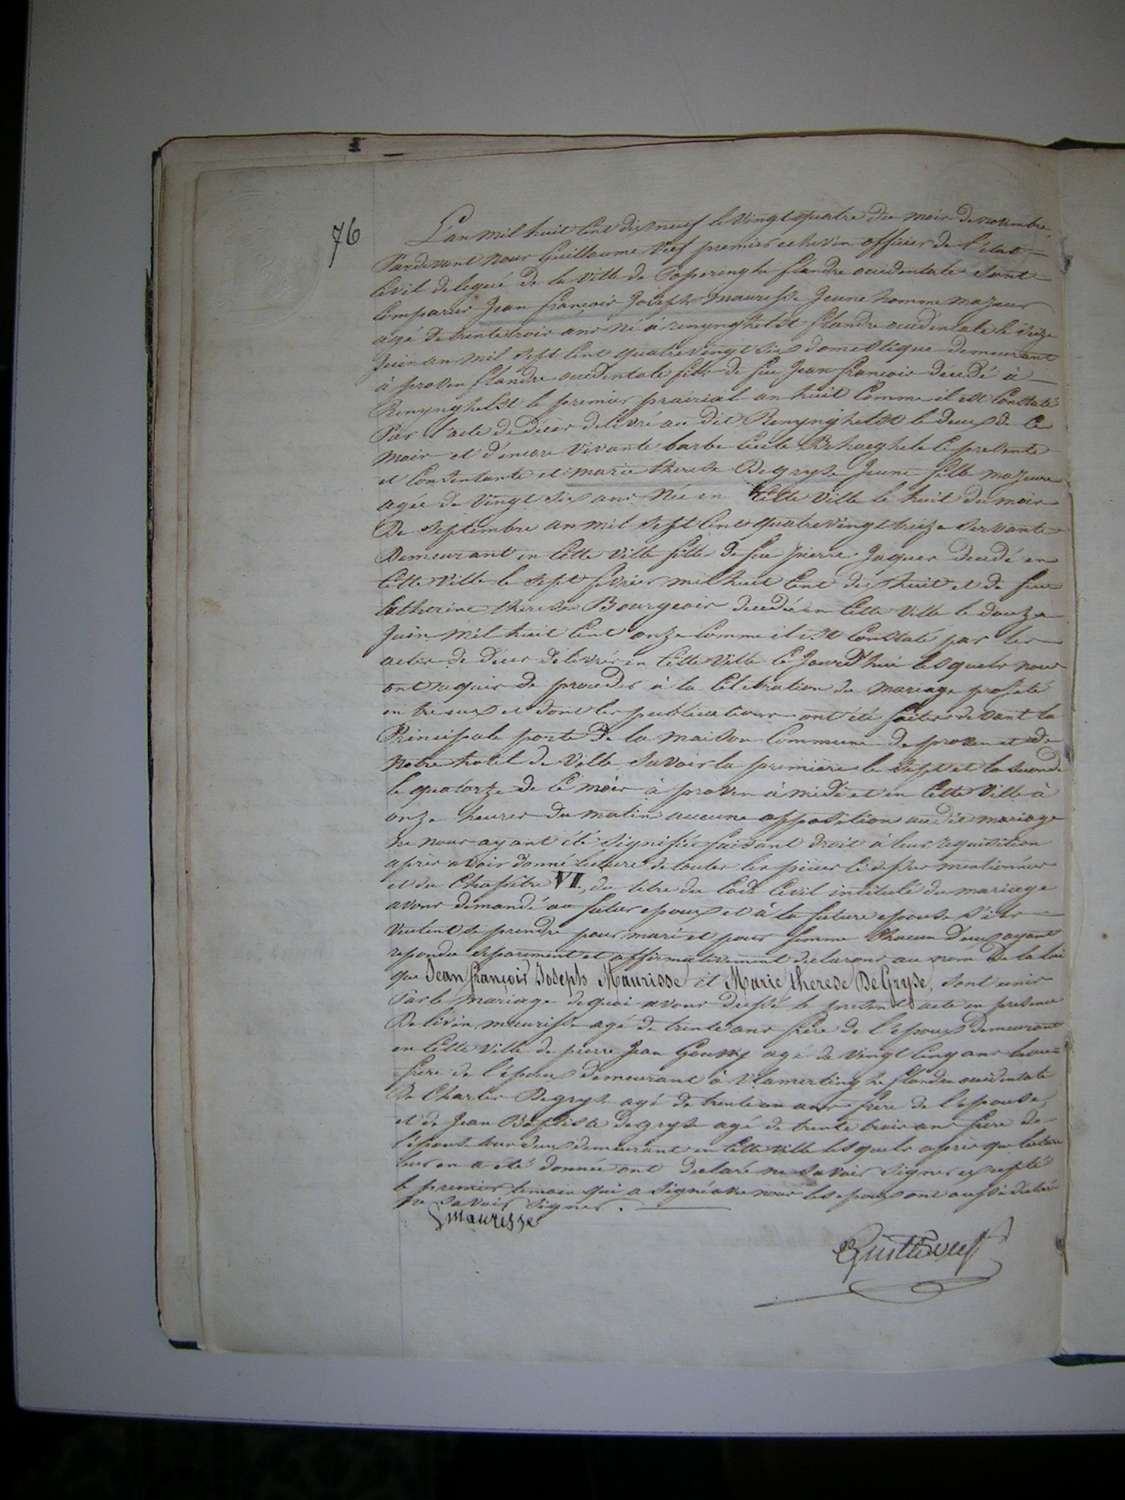 76
L'an mil huit cent dixneuf le vingt quatre du mois de novembre,
Pardevant nous Guillaume Vief premier echevin officier de l'état
Civil delegué de la Ville de Poperinghe flandre occidentale sont
Comparus Jean françois Joseph Maurisse Jeune homme majeur
agé de trente trois ans né à renynghelst flandre occidentale le seize
Juin an mil sept cent quatre vingt six domestique demeurant
à proven flandre occidentale fils de feu Jean francois decedé à
Renynghelst le premier prairial an huit Comme il est Constaté
Par l'acte de Deces delivré au dit Renynghelst le deux de ce
mois et d'encore vivante barbe Cecile Behaeghele ce presente
et Consentante et marie therese Degryse Jeune fille majeure
agée de Vingt six ans née en Cette Ville le huit du mois
De Septembre an mil sept Cent quatre vingt treize servante
Demeurant en Cette Ville fille de feu pierre Jaques decedé en
Cette Ville le sept fevrier mil huit Cent dix huit et de feue
Catherine therese Bourgeois decedée en Cette Ville le douze
Juin mil huit Cent onze Comme il est Constaté par les
actes de Deces delivrés en Cette Ville le Jourd'hui lesquels nous
ont requis de proceder à la Celebration du mariage projeté
entre eux et dont les publications ont été faites devant la
Principale porte de la maison Commune de proven et de
Notre hotel de Ville savoir la premiere le sept et la seconde
le quatorze de ce mois à proven à midi et en Cette Ville à
onze heures du matin aucune opposition au dit mariage
ne nous ayant été signifiée faisant droit à leur requisition
apres avoir donné lecture de toutes les pieces ci dessus mentionnées
et du Chapitre VI, du titre du Code Civil intitulé du mariage
avons demandé au futur epoux et à la future epouse s'ils
veulent se prendre pour mari et pour femme Chacun d'eux ayant
repondu separement et affirmativement declarons au nom de la loi
que Jean françois Joseph Maurisse et Marie therese De Gryse, sont unis
Par le mariage de quoi avons dressé le present acte en presence
De Maurisse agé de trente ans frere de l'epoux demeurant
en Cette Ville de pierre Jean agé de vingt Cinq ans beau
frere de l'époux demeurant à Vlamertinghe flandre occidentale
De Charles Degryse agé de trente un ans frere de l'epouse,
et de Jean Baptiste degryse agé de trente trois ans frere de
l'épouse tous deux demeurant en Cette Ville lesquels apres que lecture
leur en a été donnée ont declaré ne savoir signer excepté
le premier temoin qui a signé avec nous les epoux ont aussi declaré
ne savoir signer.
Maurisse